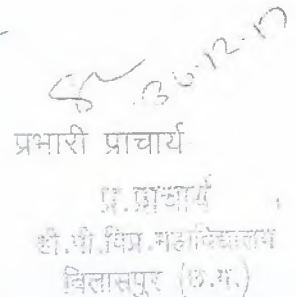 30.12.17
प्रभारी प्राचार्य
प्र. प्राचार्य
डी.पी.विप्र.महाविद्यालय
बिलासपुर (छ.ग.)